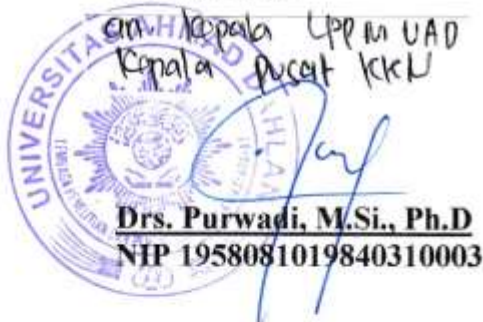 an Kepala LPPM UAD
Kepala Pusat KKN
UNIVERSITAS AHMAD DAHLAN
Drs. Purwadi, M.Si., Ph.D
NIP 1958081019840310003